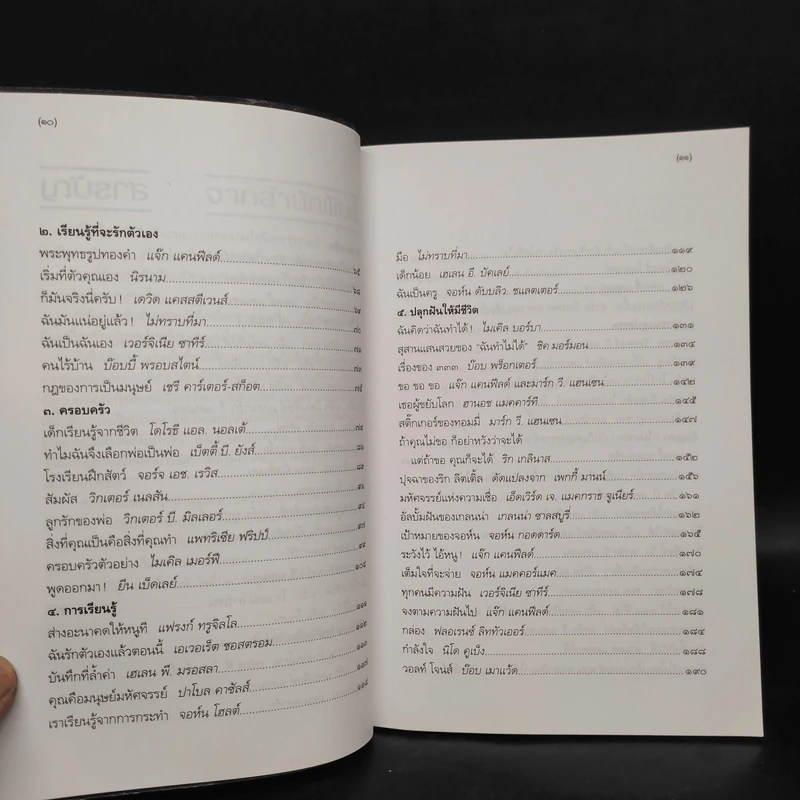 (๑๐)
๒. เรียนรู้ที่จะรักตัวเอง
พระพุทธรูปทองคำ แจ๊ก แคนฟีลด์ ๖๕
เริ่มที่ตัวคุณเอง นิรนาม ๖๘
ก็มันจริงนี่ครับ! เดวิด แคสสตีเวนส์ ๖๙
ฉันมันแน่อยู่แล้ว! ไม่ทราบที่มา ๗๐
ฉันเป็นฉันเอง เวอร์จิเนีย ซาทีร์ ๗๑
คนไร้บ้าน บ๊อบบี้ พรอบสไตน์ ๗๓
กฎของการเป็นมนุษย์ เชรี คาร์เตอร์-สก๊อต
๓. ครอบครัว
เด็กเรียนรู้จากชีวิต โดโรธี แอล. นอลเต้
ทำไมฉันจึงเลือกพ่อเป็นพ่อ เบ็ตตี้ บี. ยังส์
โรงเรียนฝึกสัตว์ จอร์จ เอช. เรวิส
สัมผัส วิกเตอร์ เนลสัน
ลูกรักของพ่อ วิกเตอร์ บี. มิลเลอร์
สิ่งที่คุณเป็นคือสิ่งที่คุณทำ แพทริเซีย ฟริปป์
ครอบครัวตัวอย่าง ไมเคิล เมอร์ฟี่
พูดออกมา! ยีน เบ็ดเลย์ ๑๐๔
๔. การเรียนรู้
ส่างอะนาคดให้หนูที แฟรงก์ ทรูจิลโล ๑๑๑
ฉันรักตัวเองแล้วตอนนี้ เอเวอเร็ต ชอสตรอม ๑๑๒
บันทึกที่ล้ำค่า เฮเลน พี. มรอสลา ๑๑๓
คุณคือมนุษย์มหัศจรรย์ ปาโบล คาซัลส์ ๑๑๗
เราเรียนรู้จากการกระทำ จอห์น โฮลต์ ๑๑๘
(๑๑)
มือ ไม่ทราบที่มา ๑๑๙
เด็กน้อย เฮเลน อี. บัคเลย์ ๑๒๐
ฉันเป็นครู จอห์น ดับบลิว. ชแลตเตอร์ ๑๒๖
๕. ปลุกฝันให้มีชีวิต
ฉันคิดว่าฉันทำได้! ไมเคิล บอร์บา ๑๓๑
สุสานแสนสวยของ "ฉันทำไม่ได้" ชิค มอร์มอน ๑๓๔
เรื่องของ ๓๓๓ บ๊อบ พร็อกเตอร์ ๑๓๙
ขอ ขอ ขอ แจ๊ก แคนฟีลด์และมาร์ก วี. แฮนเซน ๑๔๒
เธอผู้ขยับโลก ฮานอช แมคคาร์ที ๑๔๕
สติ๊กเกอร์ของทอมมี่ มาร์ก วี. แฮนเซน ๑๔๗
ถ้าคุณไม่ขอ ก็อย่าหวังว่าจะได้
แต่ถ้าขอ คุณก็จะได้ ริก เกลินาส ๑๕๒
ปุจฉาของริก ลิตเติ้ล ดัดแปลงจาก เพกกี้ มานน์ ๑๕๖
มหัศจรรย์แห่งความเชื่อ เอ็ดเวิร์ด เจ. แมคกราธ จูเนียร์ ๑๖๑
อัลบั้มฝันของเกลนน่า เกลนน่า ซาลสบูรี่ ๑๖๒
เป้าหมายของจอห์น จอห์น กอดดาร์ด ๑๖๕
ระวังไว้ ไอ้หนู! แจ๊ก แคนฟีลด์ ๑๗๐
เต็มใจที่จะจ่าย จอห์น แมคคอร์แมค ๑๗๔
ทุกคนมีความฝัน เวอร์จิเนีย ซาทีร์ ๑๗๘
จงตามความฝันไป แจ๊ก แคนฟีลด์ ๑๘๑
กล่อง ฟลอเรนซ์ ลิททัวเออร์ ๑๘๔
กำลังใจ นิโด คูเบ็ง ๑๘๘
วอลท์ โจนส์ บ๊อบ เมาแว้ด ๑๙๐